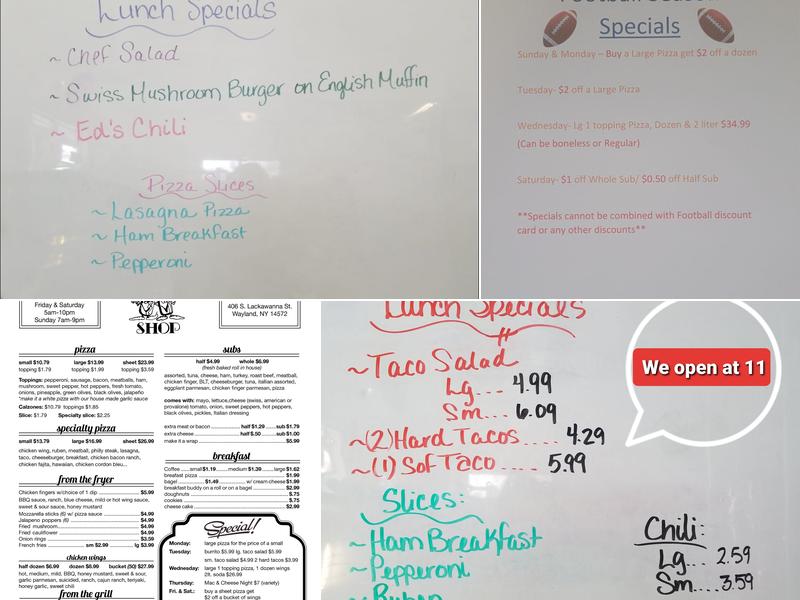 Lunch Specials
~ Chef Salad
~ Swiss Mushroom Burger on English Muffin
~ Ed's Chili
Pizza Slices
~ Lasagna Pizza
~ Ham Breakfast
~ Pepperoni
Football Season
Specials
Sunday & Monday – Buy a Large Pizza get $2 off a dozen
Tuesday- $2 off a Large Pizza
Wednesday- Lg 1 topping Pizza, Dozen & 2 liter $34.99
(Can be boneless or Regular)
Saturday- $1 off Whole Sub/ $0.50 off Half Sub
**Specials cannot be combined with Football discount
card or any other discounts**
Friday & Saturday
5am-10pm
Sunday 7am-9pm
SHOP
406 S. Lackawanna St.
Wayland, NY 14572
pizza
small $10.79 large $13.99 sheet $23.99
topping $1.79 topping $1.99 topping $3.59
Toppings: pepperoni, sausage, bacon, meatballs, ham,
mushroom, sweet pepper, hot peppers, fresh tomato,
onions, pineapple, green olives, black olives, jalapeno
*make it a white pizza with our house made garlic sauce
Calzones: $10.79 toppings $1.85
Slice: $1.79 Specialty slice: $2.25
specialty pizza
small $13.79 large $16.99 sheet $26.99
chicken wing, ruben, meatball, philly steak, lasagna,
taco, cheeseburger, breakfast, chicken bacon ranch,
chicken fajita, hawaiian, chicken cordon bleu...
from the fryer
Chicken fingers w/choice of 1 dip $5.99
BBQ sauce, ranch, blue cheese, mild or hot wing sauce,
sweet & sour sauce, honey mustard
Mozzarella sticks (6) w/ pizza sauce $4.99
Jalapeno poppers (6) $4.99
Fried mushroom $4.99
Fried cauliflower $4.99
Onion rings $3.59
French fries sm $2.99 lg $3.99
chicken wings
half dozen $6.99 dozen $8.99 bucket (50) $27.99
hot, medium, mild, BBQ, honey mustard, sweet & sour,
garlic parmesan, suicided, ranch, cajun ranch, teriyaki,
honey garlic, sweet chili
from the grill
subs
half $4.99 whole $6.99
(fresh baked roll in house)
assorted, tuna, cheese, ham, turkey, roast beef, meatball,
chicken finger, BLT, cheeseburger, tuna, italian assorted,
eggplant parmesan, chicken finger parmesan, pizza
comes with: mayo, lettuce,cheese (swiss, american or
provalone) tomato, onion, sweet peppers, hot peppers,
black olives, pickles, Italian dressing
extra meat or bacon half $1.29 sub $1.79
extra cheese half $.50 sub $1.00
make it a wrap $5.99
breakfast
Coffee small $1.19 medium $1.39 large $1.62
breafast pizza $1.99
bagel $1.49 w/ cream cheese $1.99
breakfast buddy on a roll or on a bagel $2.99
doughnuts $.75
cookies $.75
cheese cake $2.99
Special!
Monday: large pizza for the price of a small
Tuesday: burrito $5.99 lg, taco salad $5.99
sm. taco salad $4.99 2 hard tacos $3.99
Wednesday: large 1 topping pizza, 1 dozen wings
2lt. soda $26.99
Thursday: Mac & Cheese Night $7 (variety)
Fri. & Sat.: buy a sheet pizza get
$2 off a bucket of wings
Lunch Specials
~Taco Salad
Lg... 4.99
Sm... 6.09
~(2) Hard Tacos.... 4.29
~(1) Sof Taco..... 5.99
Slices:
~Ham Breakfast
~Pepperoni
~Ruben
We open at 11
Chili:
Lg... 2.59
Sm....3.59